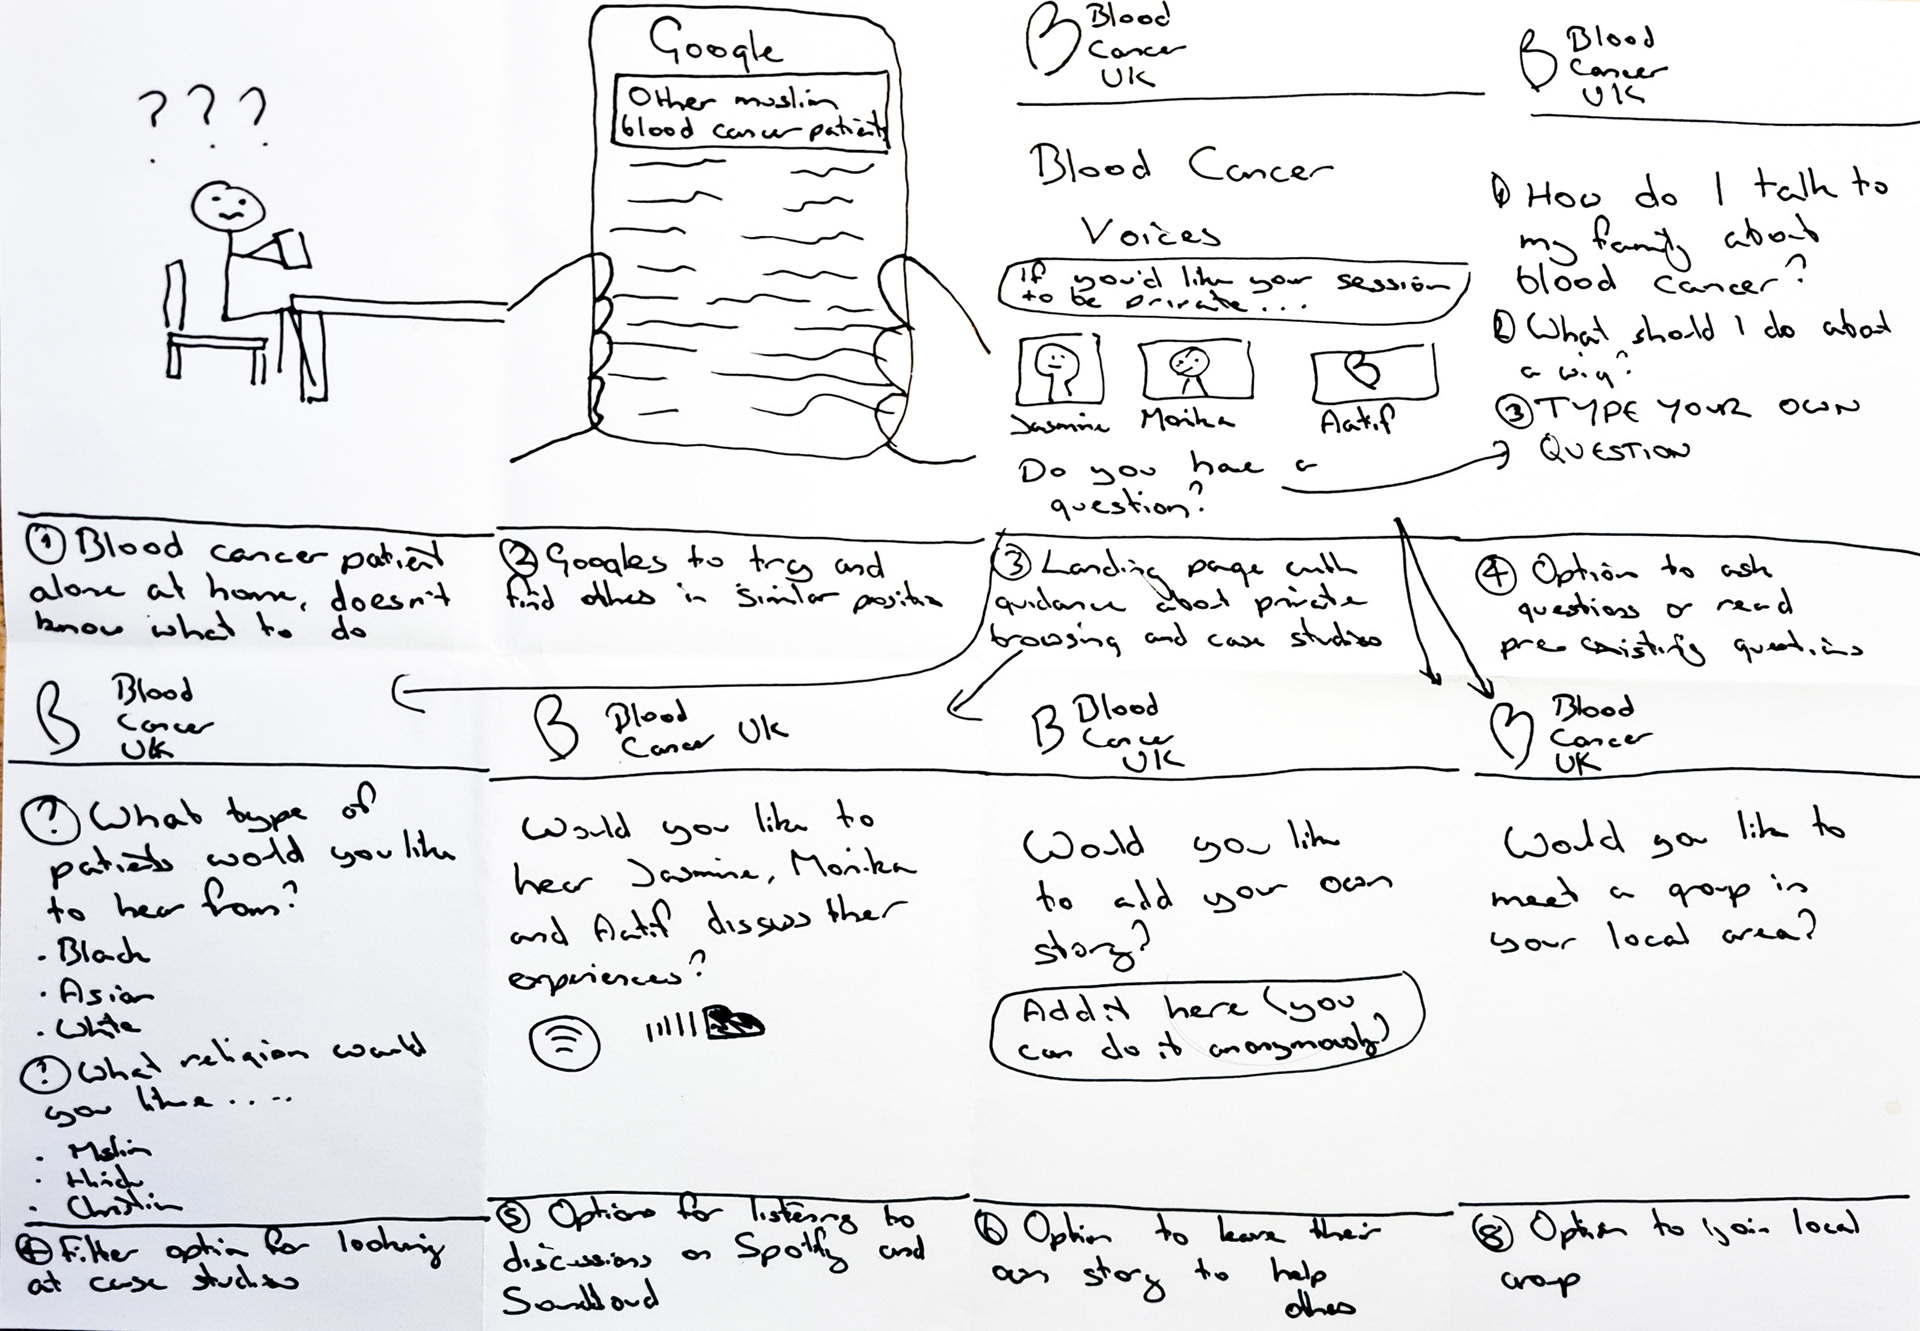 ? ? ?
Google
Other muslim
blood cancer patients
Blood
Cancer
UK
Blood Cancer
Voices
If you'd like your session
to be private...
Jasmine
Monika
Aatif
Do you have a
question?
Blood
Cancer
UK
1 How do I talk to
my family about
blood cancer?
2 What should I do about
a wig?
3 TYPE YOUR OWN
QUESTION
1 Blood cancer patient
alone at home, doesn't
know what to do
2 Googles to try and
find others in similar position
3 Landing page with
guidance about private
browsing and case studies
4 Option to ask
questions or read
pre-existing questions
Blood
Cancer
UK
? What type of
patients would you like
to hear from?
• Black
• Asian
• White
? What religion would
you like.....
• Muslim
• Hindu
• Christian
Filter option for looking
at case studies
Blood
Cancer UK
Would you like to
hear Jasmine, Monika
and Aatif discuss their
experiences?
5 Options for listening to
discussions on Spotify and
Soundcloud
Blood
Cancer
UK
Would you like
to add your own
story?
Add it here (you
can do it anonymously)
6 Option to leave their
own story to help
others
Blood
Cancer
UK
Would you like to
meet a group in
your local area?
8 Option to join local
group